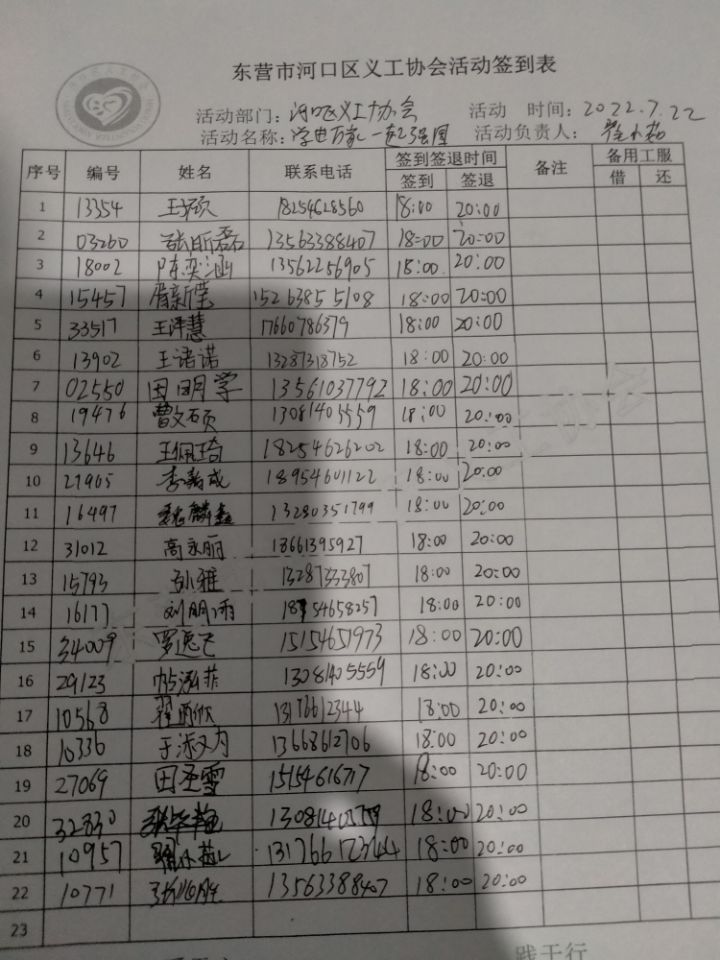 东营市河口区义工协会活动签到表
活动部门：河口区义工协会 活动 时间：2022.7.22
活动名称：学 万 一 强国 活动负责人：翟小
序号 编号 姓名 联系电话 签到签退时间 备注 备用工服
签到 签退 借 还
1 13354 王硕 18254628560 18:00 20:00
2 03260 张昕磊 13563388407 18:00 20:00
3 18002 陈奕涵 13562256905 18:00 20:00
4 15457 胥新莹 15263855108 18:00 20:00
5 33517 王泽慧 17660786379 18:00 20:00
6 13902 王诺诺 13287318752 18:00 20:00
7 02550 田明学 13561037792 18:00 20:00
8 19476 曹文硕 13081405559 18:00 20:00
9 13646 王佩琦 18254626202 18:00 20:00
10 27905 李嘉成 18954601122 18:00 20:00
11 16497 魏麟鑫 13280351799 18:00 20:00
12 31012 高永丽 18661395927 18:00 20:00
13 15793 孙雅 13287333807 18:00 20:00
14 16177 刘朋雨 18:00 20:00
15 34009 罗逸飞 15154651973 18:00 20:00
16 29123 泓菲 13081405559 18:00 20:00
17 10568 翟雨欣 13176612344 18:00 20:00
18 10336 于淑 13668612706 18:00 20:00
19 27069 田圣雪 15154616717 18:00 20:00
20 32830 18:00 20:00
21 10957 翟小 13176612344 18:00 20:00
22 10771 张 13563388407 18:00 20:00
23
践于行